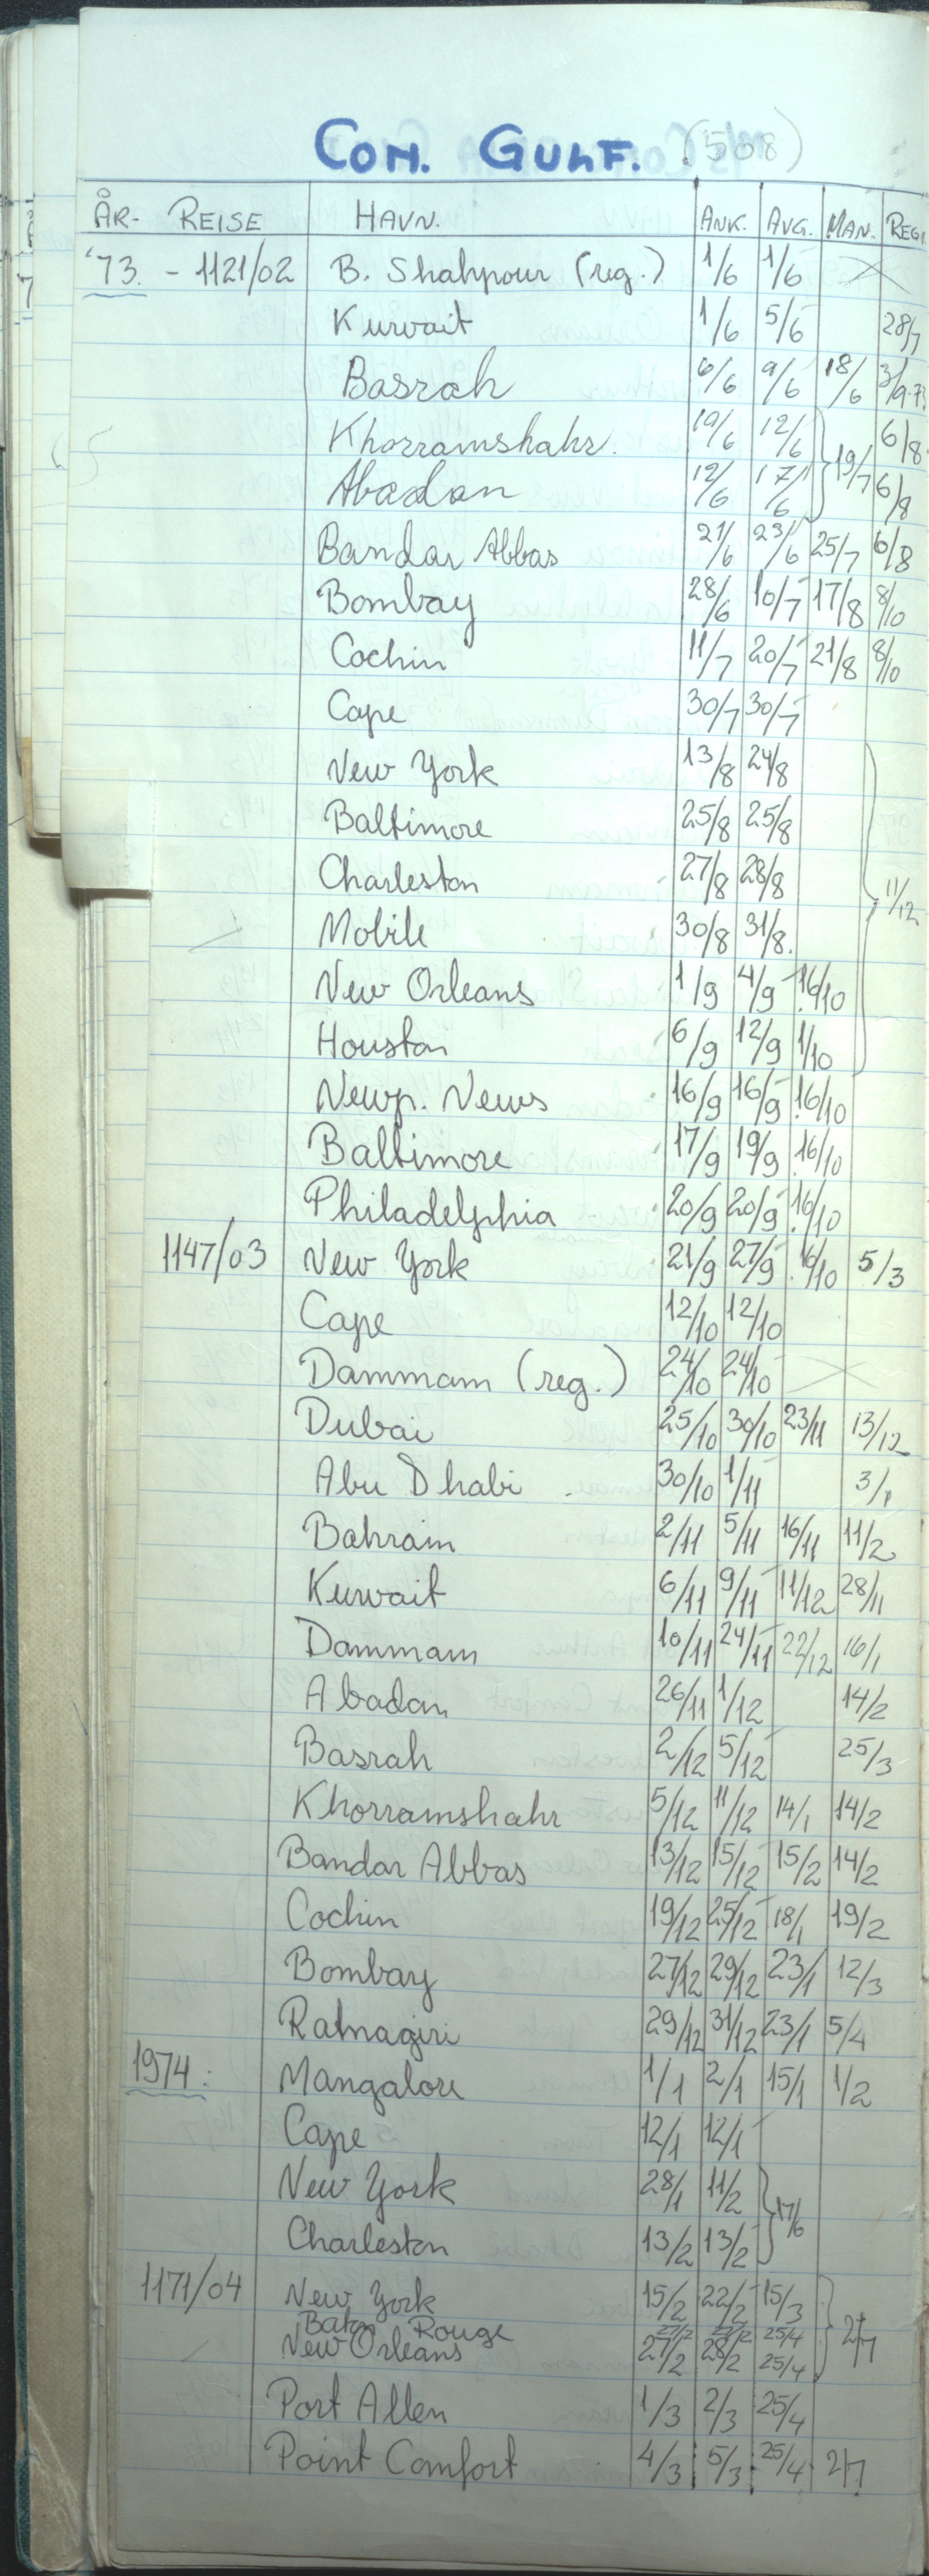 COM. GULF. (508)
ÅR- REISE HAVN. ANK. AVG. MAN. REGI
'73. - 1121/02 B. Shahpour (reg.) 1/6 1/6
Kuwait 1/6 5/6 28/7
Basrah 6/6 9/6 18/6 3/9-73
Khorramshahr. 10/6 12/6 6/8
19/7
Abadan 12/6 17/6 6/8
Bandar Abbas 21/6 23/6 25/7 6/8
Bombay 28/6 10/7 17/8 8/10
Cochin 11/7 20/7 21/8 8/10
Cape 30/7 30/7
New York 13/8 24/8
Baltimore 25/8 25/8
Charleston 27/8 28/8 11/12
Mobile 30/8 31/8.
New Orleans 1/9 4/9 16/10
Houston 6/9 12/9 1/10
Newp. News 16/9 16/9 16/10
Baltimore 17/9 19/9 16/10
Philadelphia 20/9 20/9 16/10
1147/03 New York 21/9 27/9 16/10 5/3
Cape 12/10 12/10
Dammam (reg.) 24/10 24/10
Dubai 25/10 30/10 23/11 13/12
Abu Dhabi 30/10 1/11 3/1
Bahrain 2/11 5/11 16/11 11/2
Kuwait 6/11 9/11 11/12 28/11
Dammam 10/11 24/11 22/12 16/1
Abadan 26/11 1/12 14/2
Basrah 2/12 5/12 25/3
Khorramshahr 5/12 11/12 14/1 14/2
Bandar Abbas 13/12 15/12 15/2 14/2
Cochin 19/12 25/12 18/1 19/2
Bombay 27/12 29/12 23/1 12/3
Ratnagiri 29/12 31/12 23/1 5/4
1974: Mangalore 1/1 2/1 15/1 1/2
Cape 12/1 12/1
New York 28/1 11/2
17/6
Charleston 13/2 13/2
1171/04 New York 15/2 22/2 15/3
Baton Rouge 27/2 27/2 25/4
New Orleans 27/2 28/2 25/4 2/7
Port Allen 1/3 2/3 25/4
Point Comfort 4/3 5/3 25/4 2/7